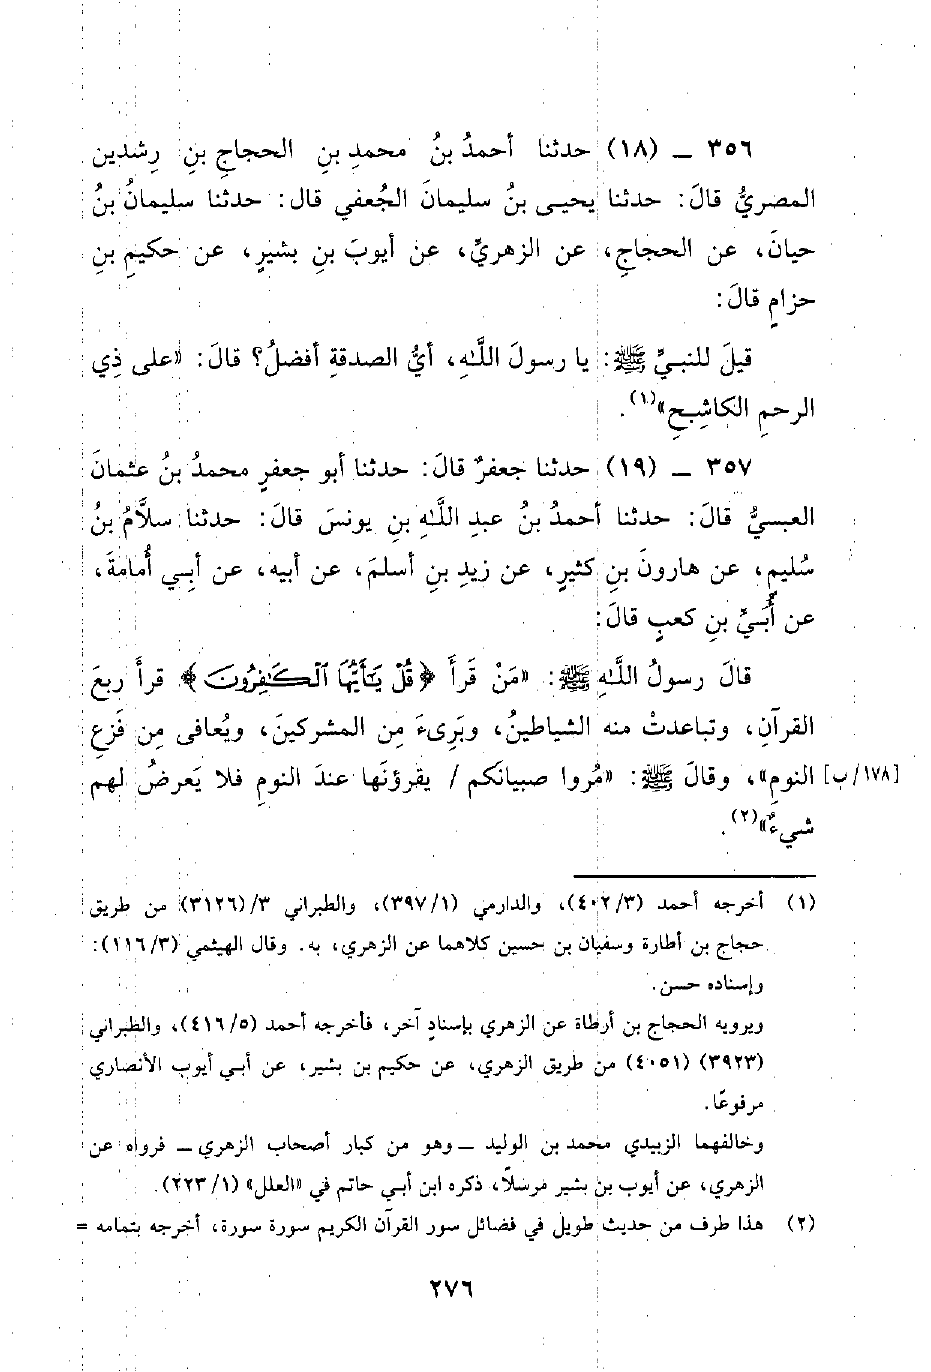 ٣٥٦ ــ (١٨) حدثنا أحمدُ بنُ محمدِ بنِ الحجاجِ بنِ رِشدين
المصريُّ قالَ: حدثنا يحيى بنُ سليمانَ الجُعفي قال: حدثنا سليمانُ بنُ
حيانَ، عن الحجاجِ، عن الزهريِّ، عن أيوبَ بنِ بشيرٍ، عن حكيمِ بنِ
حزامٍ قالَ:
قيلَ للنبيِّ ﷺ: يا رسولَ اللَّهِ، أيُّ الصدقةِ أفضلُ؟ قالَ: «على ذِي
الرحمِ الكاشِحِ»(١).
٣٥٧ ــ (١٩) حدثنا جعفرٌ قالَ: حدثنا أبو جعفرٍ محمدُ بنُ عثمانَ
العبسيُّ قالَ: حدثنا أحمدُ بنُ عبدِ اللَّهِ بنِ يونسَ قالَ: حدثنا سلاَّمُ بنُ
سُليمٍ، عن هارونَ بنِ كثيرٍ، عن زيدِ بنِ أسلمَ، عن أبيه، عن أبِي أُمامةَ،
عن أُبَيِّ بنِ كعبٍ قالَ:
قالَ رسولُ اللَّهِ ﷺ: «مَنْ قَرأَ ﴿قُلْ يَٰٓأَيُّهَا ٱلْكَٰفِرُونَ﴾ قرأَ ربعَ
القرآنِ، وتباعدتْ منه الشياطينُ، وبَرِىءَ مِن المشركينَ، ويُعافى مِن فَزعِ
النومِ»، وقالَ ﷺ: «مُروا صبيانَكم / يقرؤنَها عندَ النومِ فلا يَعرضُ لهم [١٧٨/ب]
شيءٌ»(٢).
(١) أخرجه أحمد (٤٠٢/٣)، والدارمي (٣٩٧/١)، والطبراني ٣/(٣١٢٦) من طريق
حجاج بن أطارة وسفيان بن حسين كلاهما عن الزهري، به. وقال الهيثمي (١١٦/٣):
وإسناده حسن.
ويرويه الحجاج بن أرطاة عن الزهري بإسنادٍ آخر، فأخرجه أحمد (٤١٦/٥)، والطبراني
(٣٩٢٣) (٤٠٥١) من طريق الزهري، عن حكيم بن بشير، عن أبي أيوب الأنصاري
مرفوعًا.
وخالفهما الزبيدي محمد بن الوليد ــ وهو من كبار أصحاب الزهري ــ فرواه عن
الزهري، عن أيوب بن بشير مرسلًا، ذكره ابن أبي حاتم في «العلل» (٢٢٣/١).
(٢) هذا طرف من حديث طويل في فضائل سور القرآن الكريم سورة سورة، أخرجه بتمامه =
٢٧٦